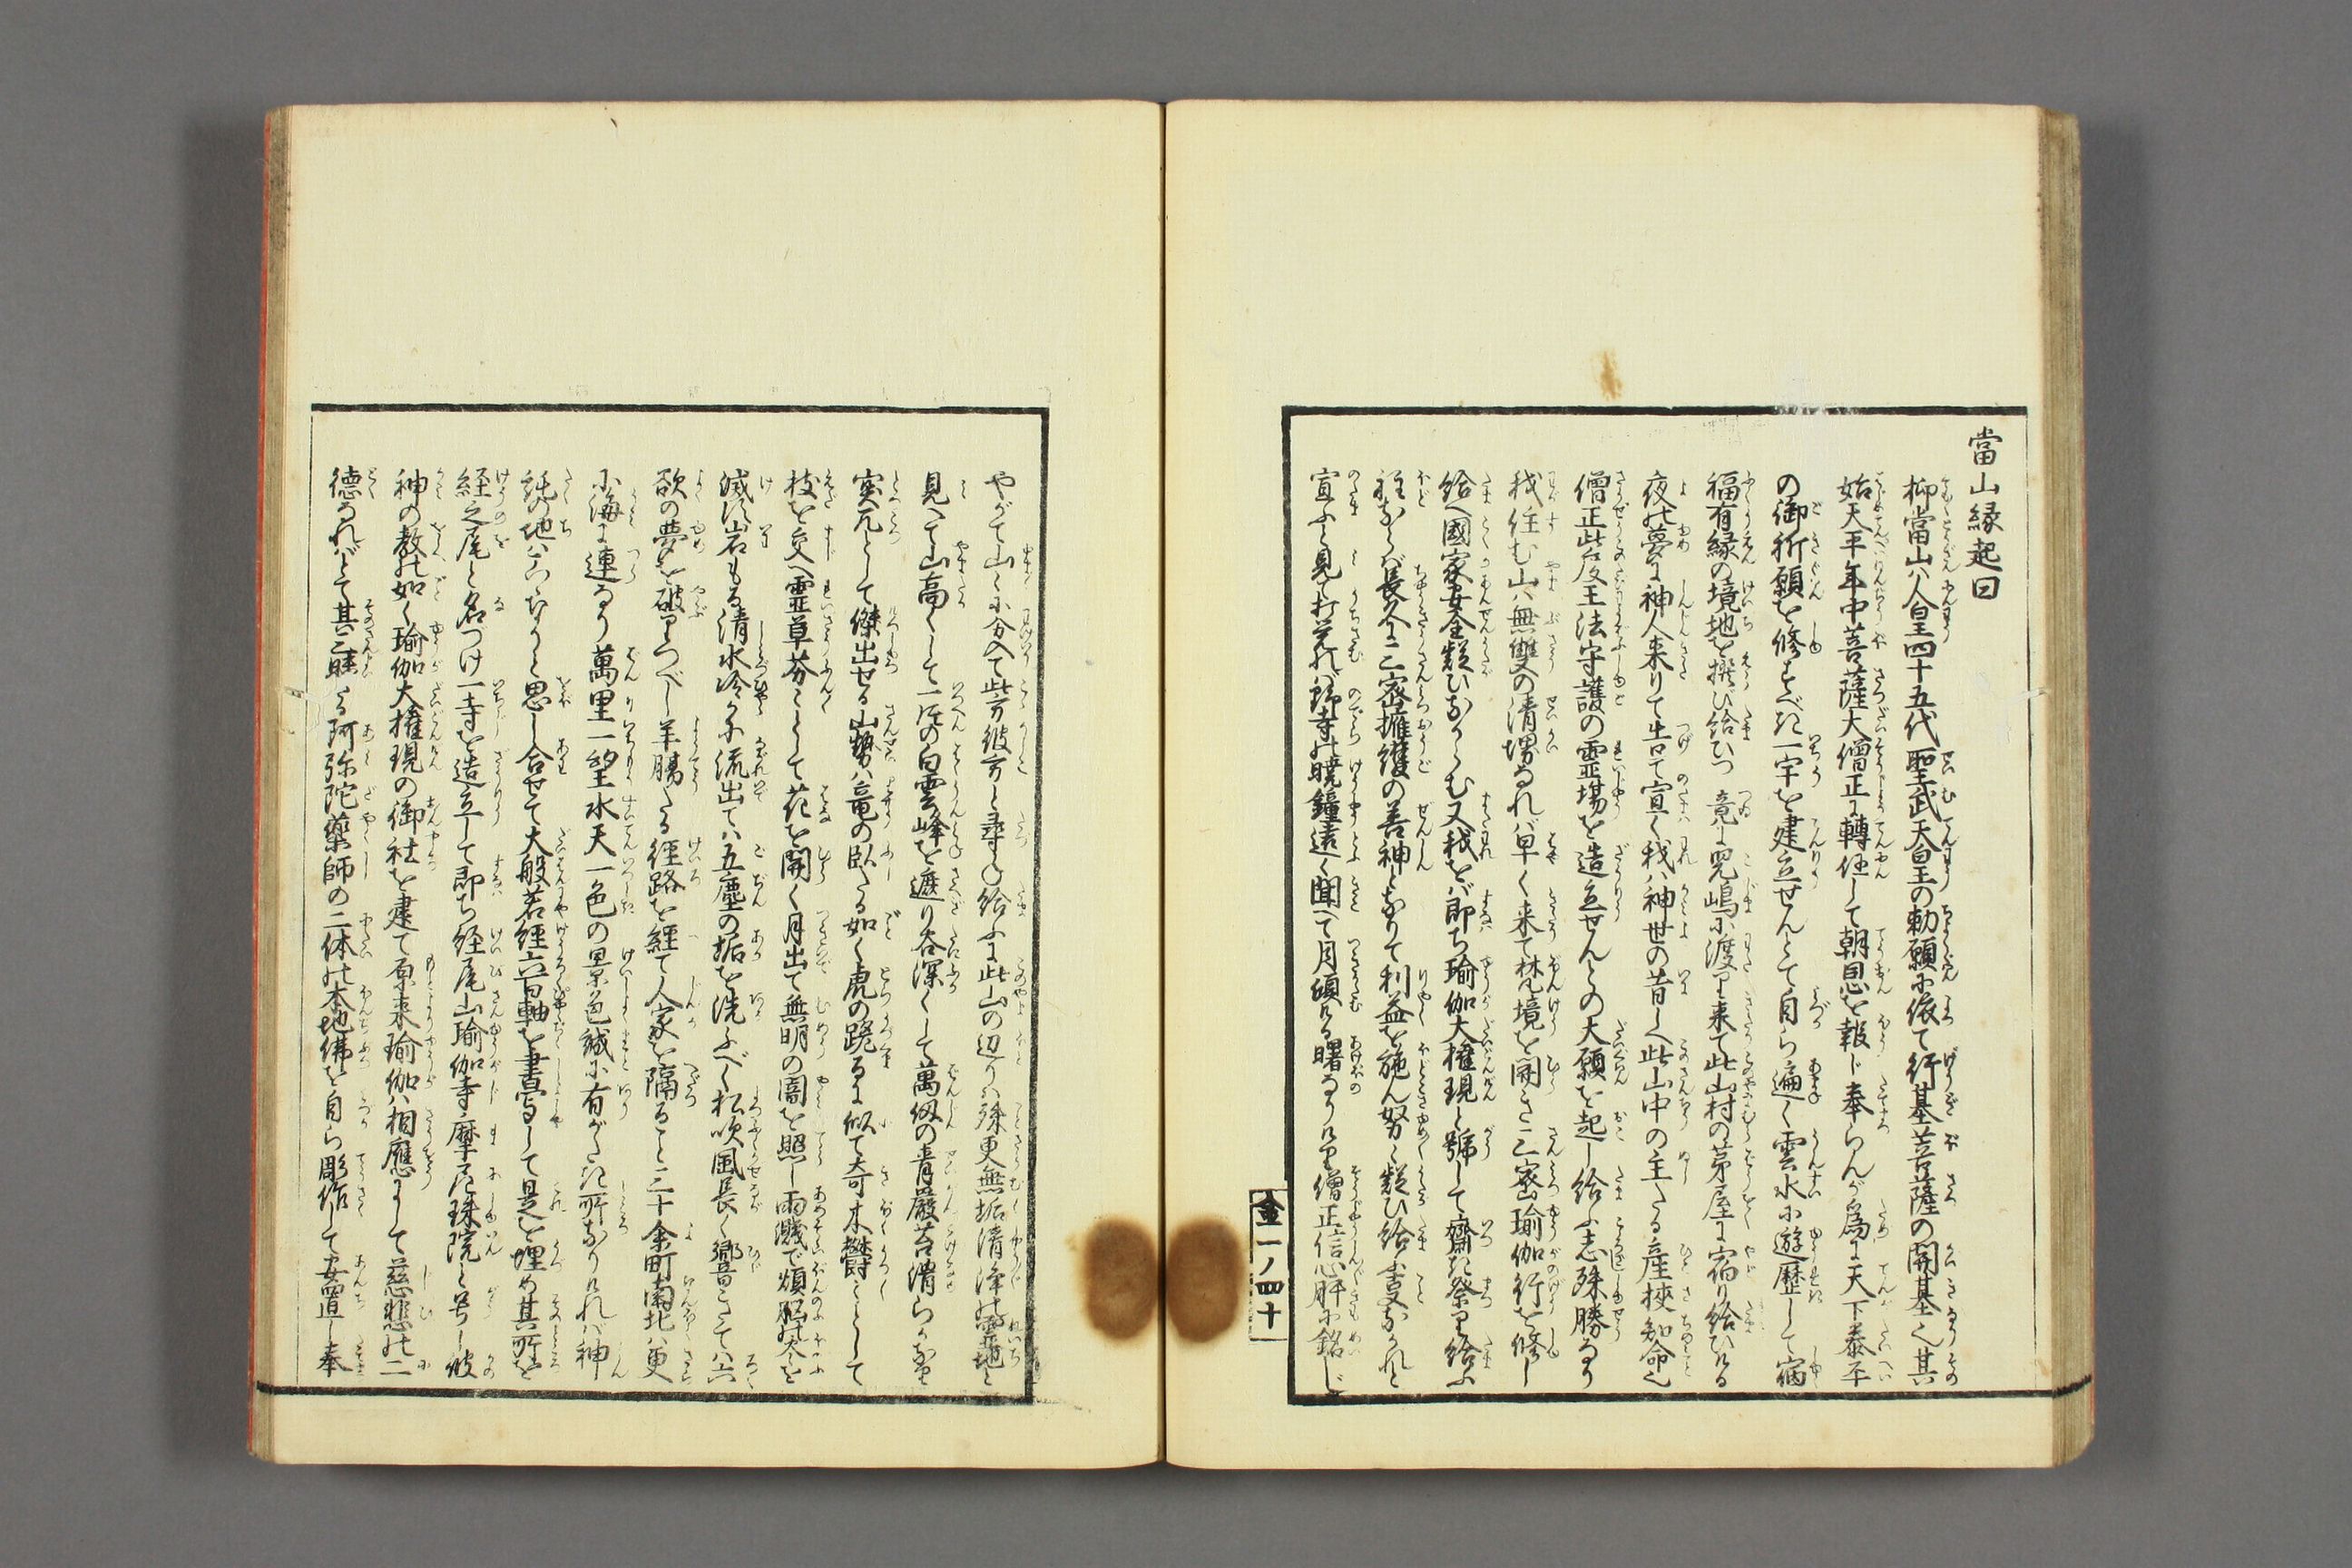 當山縁起曰
抑當山ハ人皇四十五代聖武天皇の勅願に依て行基菩薩の開基也其
始天平年中菩薩大僧正に轉任して朝恩を報じ奉らんが為に天下泰平
の御祈願を修すべき一宇を建立せんとて自ら遍く雲水に遊歴して宿
福有縁の境地を撰び給ひつゝ竟に児嶋に渡り来て此山村の茅屋に宿り給ひける
夜の夢に神人来りて告て宣く我ハ神世の昔より此山中の主たる産狭知命也
僧正此度王法守護の霊場を造立せんとの大願を起し給ふ志殊勝なり
我住む山ハ無雙の清堺なれバ早く来て梵境を開き三密瑜伽行を修し
給へ國家安全疑ひなからむ又我をバ即ち瑜伽大権現と號して齋き祭り給ふ
程ならバ長久に三密擁護の善神となりて利益を施ん努々疑ひ給ふ事なかれと
宣ふと見て打覚れバ野寺の暁鐘遠く聞へて月傾ける曙なりけり僧正信心肝に銘じ
金一ノ四十
やがて山々に分入て此方彼方と尋ね給ふに此山の辺りハ殊更無垢清浄の霊地と
見へて山高くして一片の白雲峰を遮り谷深くして萬仭の青巌苔滑らかなり
突兀として傑出せる山勢ハ竜の臥たる如く虎の踞るに似て奇木欝々として
枝を交へ霊草芬々として花を開く月出て無明の闇を照し雨濺で煩悩の炎を
滅す岩もる清水冷かに流出てハ五塵の垢を洗ふべく松吹風長く響きてハ六
欲の夢を破りつべし羊腸たる径路を経て人家を隔ること三十余町南北ハ更
に海に連なり萬里一望水天一色の景色誠に有がたき所なりけれバ神
託の地ハこゝなりと思し合せて大般若経六百軸を書写して是を埋め其所を
経之尾と名づけ一寺を造立して即ち経尾山瑜伽寺摩尼珠院と号し彼
神の教の如く瑜伽大権現の御社を建て原来瑜伽ハ相應にして慈悲の二
德なれバとて其三昧たる阿弥陀薬師の二体の本地佛を自ら彫作して安置し奉